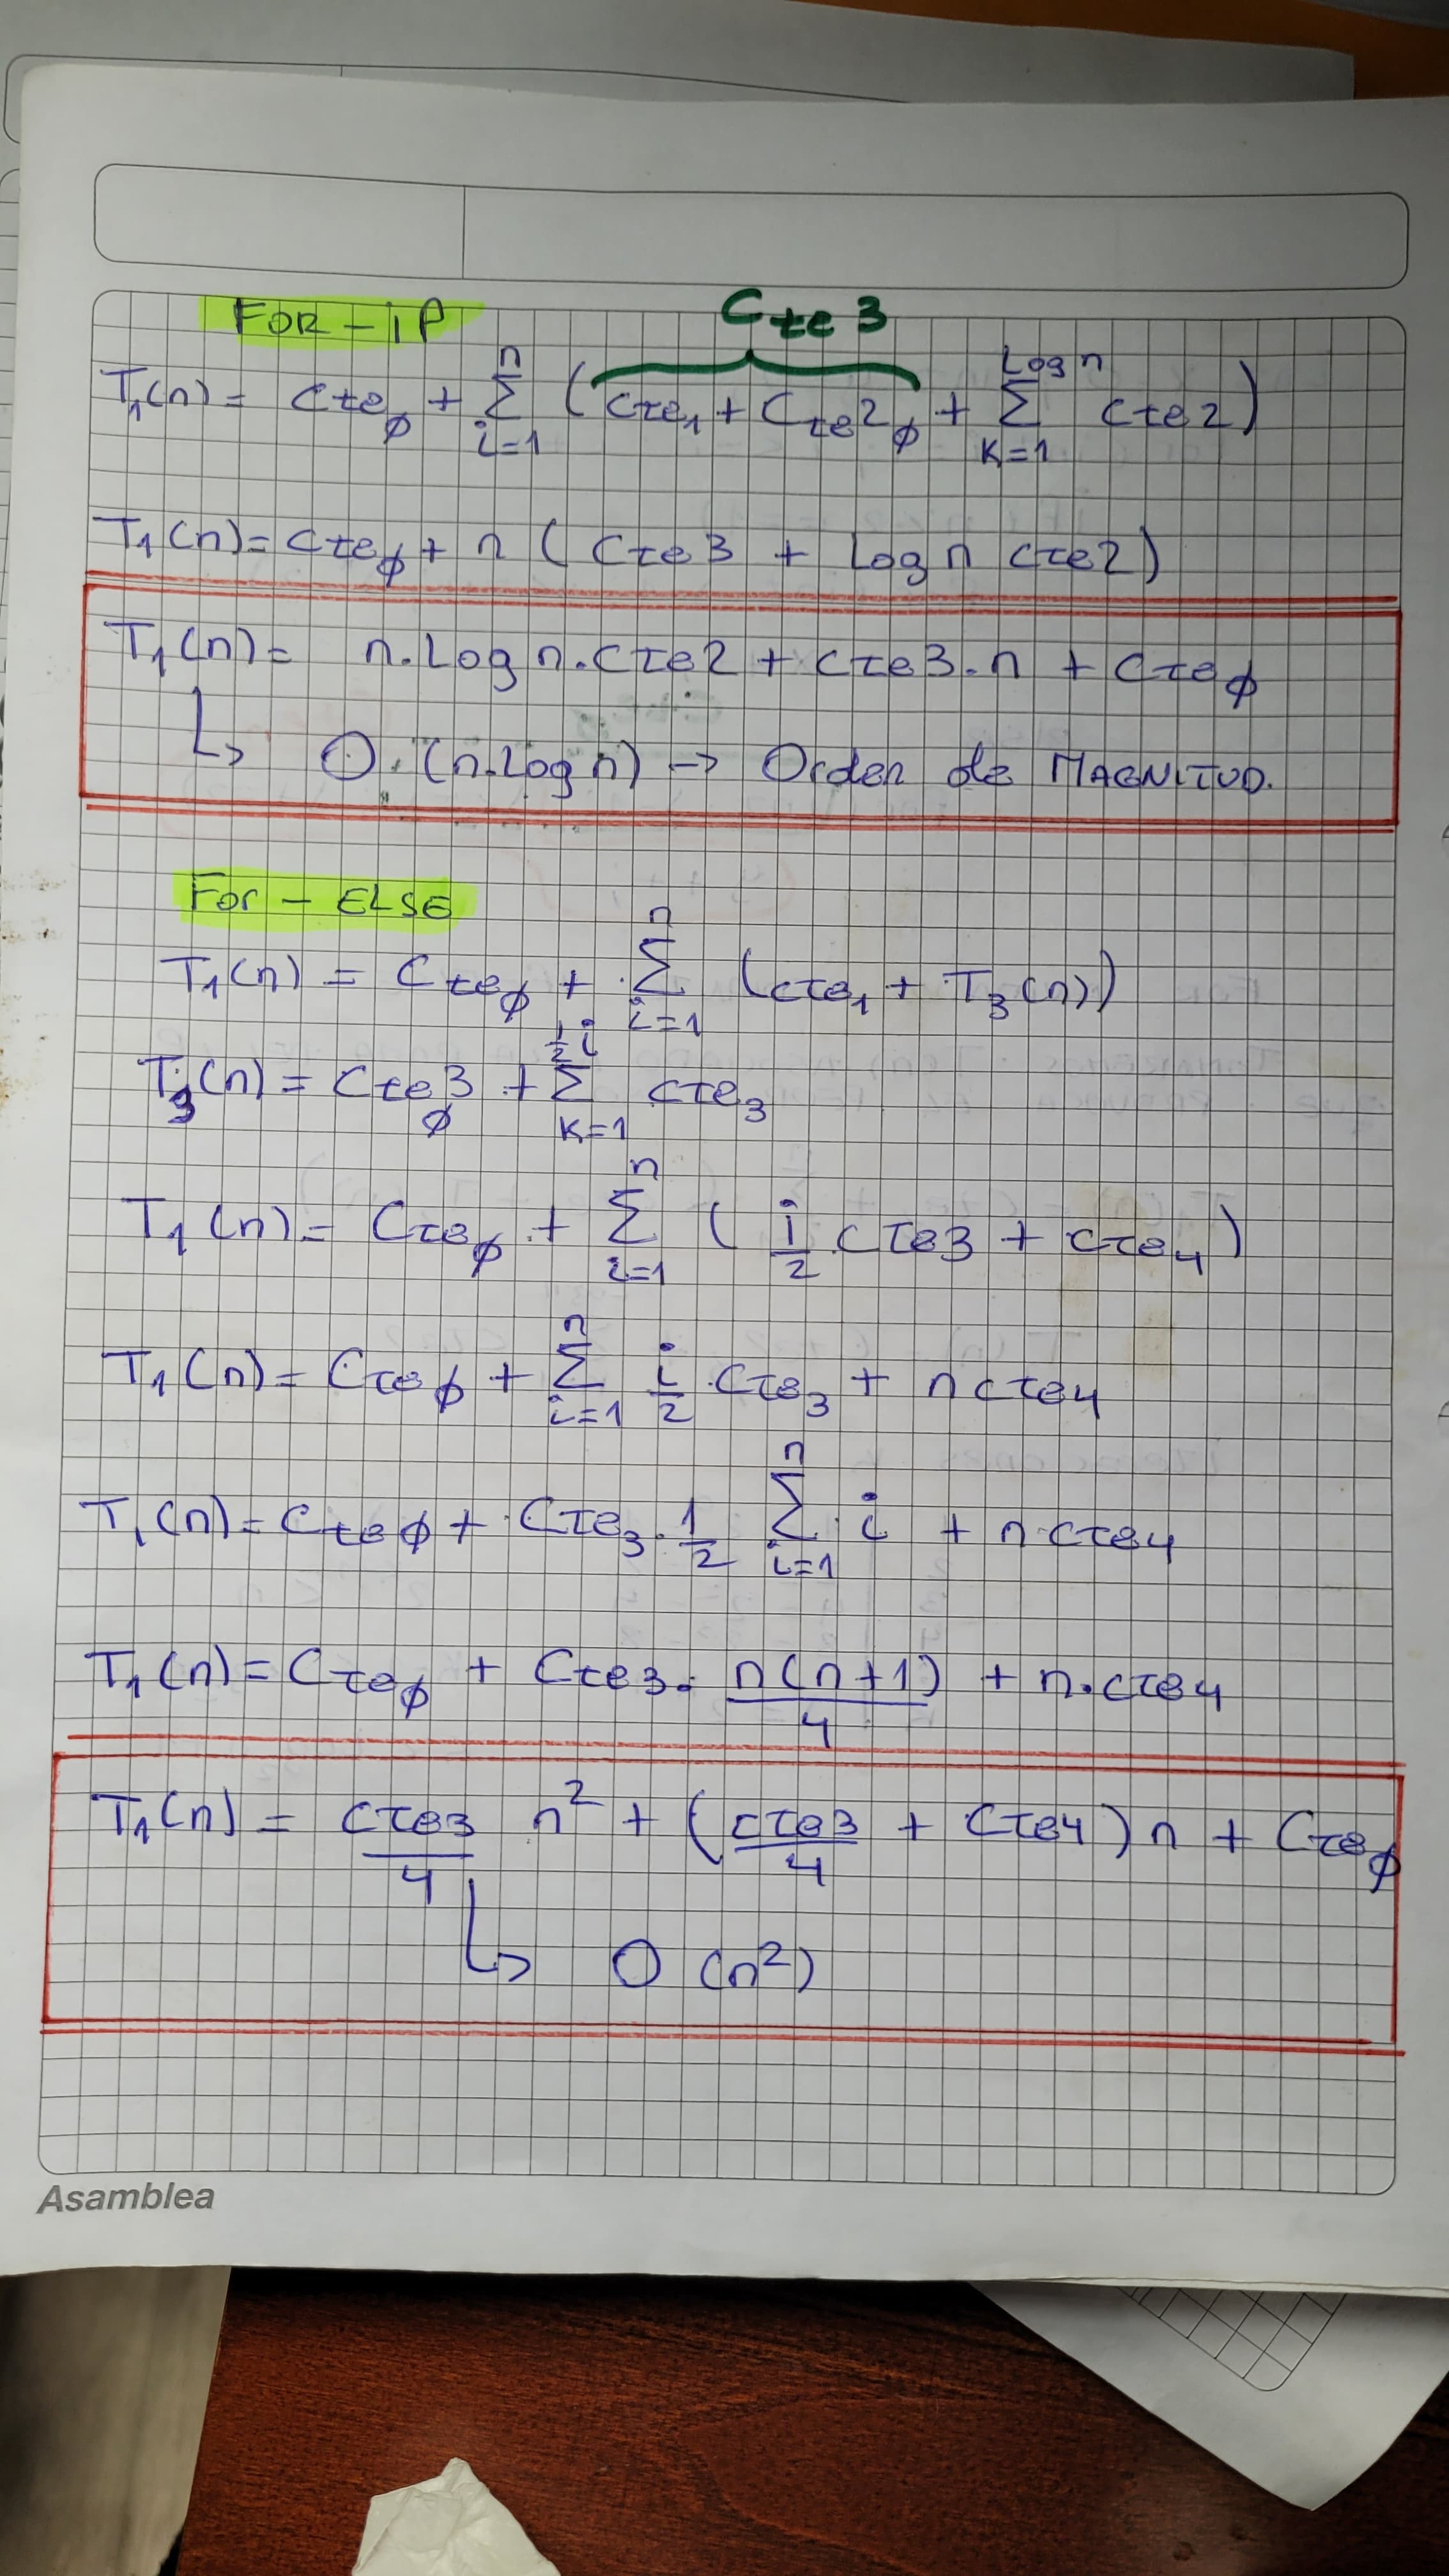 FOR - iP
Cte 3
T₁(n) = Cteφ + Σ_{i=1}^{n} (cte₁ + Cte2φ + Σ_{K=1}^{Log n} cte2)
T₁(n) = cteφ + n (Cte3 + Log n cte2)
T₁(n) = n.Log n.cte2 + cte3.n + cteφ
↳ O.(n.Log n) → Orden de MAGNITUD.
For - ELSE
T₁(n) = Cteφ + Σ_{i=1}^{n} (cte₁ + T₃(n))
T₃(n) = Cte3φ + Σ_{K=1}^{½i} cte₃
T₁(n) = Cteφ + Σ_{i=1}^{n} (i/2 . cte3 + cte₄)
T₁(n) = Cteφ + Σ_{i=1}^{n} i/2 . cte₃ + n cte4
T₁(n) = Cteφ + Cte₃ . 1/2 Σ_{i=1}^{n} i + n.cte4
T₁(n) = Cteφ + Cte3 . n(n+1)/4 + n.cte4
T₁(n) = cte3/4 n² + (cte3/4 + Cte4) n + Cteφ
↳ O (n²)
Asamblea